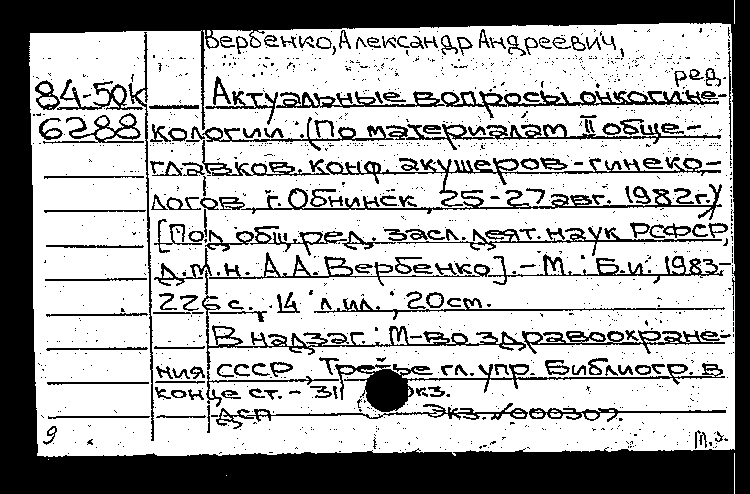 Вербенко, Александр Андреевич,
ред.
84-50к Актуальные вопросы онкогине-
6288 кологии : (По материалам II обще-
главков. конф. акушеров-гинеко-
логов, г. Обнинск, 25-27 авг. 1982г.)
[Под общ. ред. засл. деят. наук РСФСР,
д.м.н. А.А. Вербенко]. - М. : Б.и., 1983.-
226 с., 14 л.ил. ; 20 см.
В надзаг. : М-во здравоохране-
ния СССР, Третье гл. упр. Библиогр. в
конце ст. - 311 экз.
ДСП Экз. №000309.
9